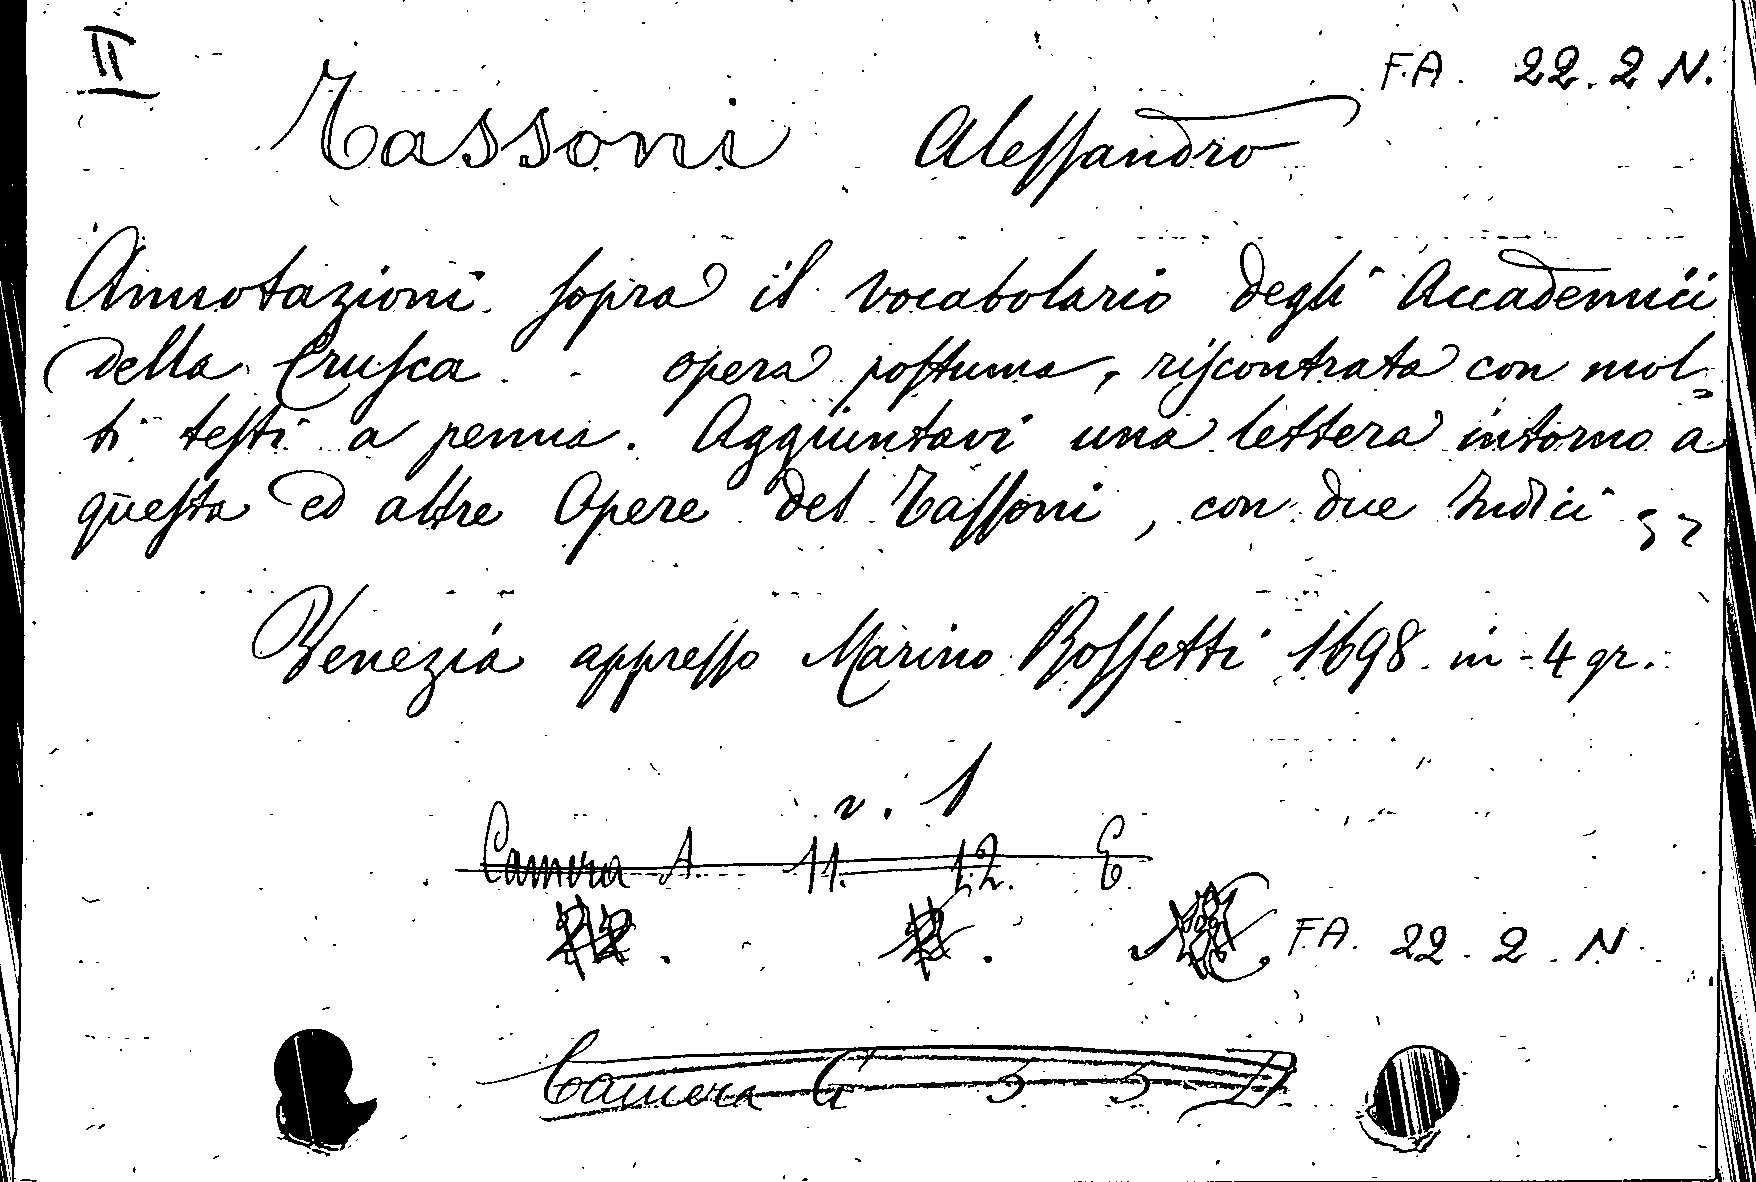 II
F.A. 22.2 N.
Tassoni Alessandro
Annotazioni sopra il vocabolario degli Accademici
della Crusca. - opera postuma, riscontrata con mol-
ti testi a penna. Aggiuntavi una lettera intorno a
questa ed altre Opere del Tassoni, con due Indici
Venezia appresso Marino Rossetti 1698. in-4 gr.
v. 1
Camera A 11. 12. E
F.A. 22. 2. N.
Camera G 5 5 D